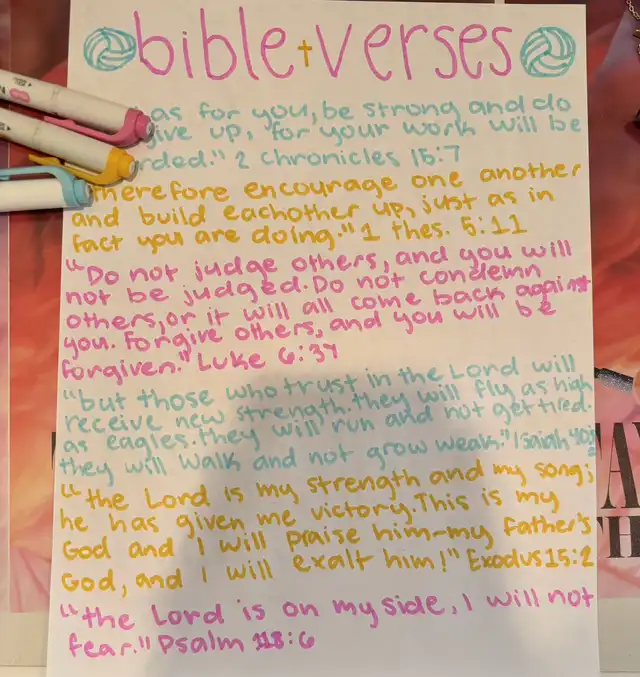 bible verses
as for you, be strong and do
give up, for your work will be
rded." 2 Chronicles 15:7
therefore encourage one another
and build eachother up, just as in
fact you are doing." 1 thes. 5:11
"Do not judge others, and you will
not be judged. Do not condemn
others, or it will all come back against
you. Forgive others, and you will be
forgiven." Luke 6:37
"but those who trust in the Lord will
receive new strength. they will fly as high
as eagles. they will run and not get tired.
they will walk and not grow weak." Isaiah
"the Lord is my strength and my song;
he has given me victory. This is my
God and I will praise him-my father's
God, and I will exalt him!" Exodus 15:2
"the Lord is on my side, I will not
fear." Psalm 118:6